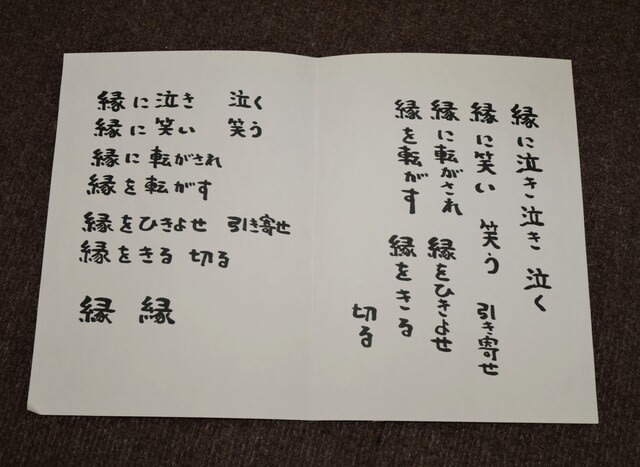 縁に泣き 泣く
縁に笑い 笑う
縁に転がされ
縁を転がす
縁をひきよせ 引き寄せ
縁をきる 切る
縁 縁
縁に泣き泣き 泣く
縁に笑い 笑う 引き寄せ
縁に転がされ 縁をひきよせ
縁を転がす 縁をきる
切る